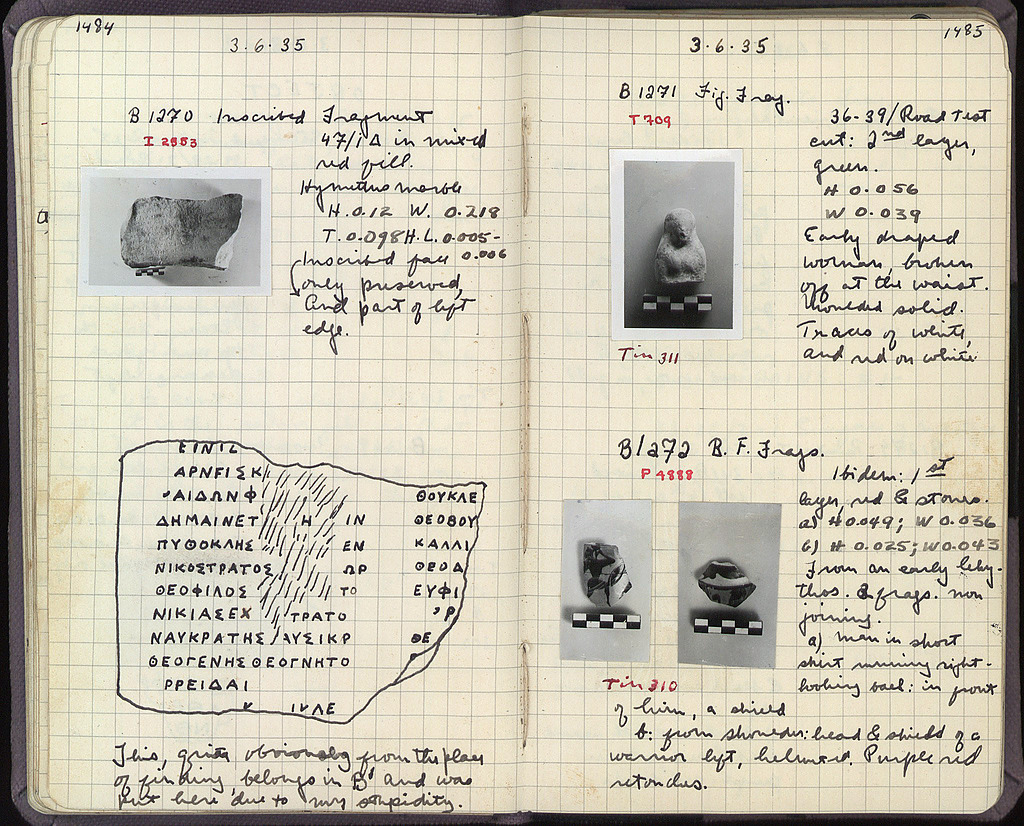 1484
3.6.35
B 1270 Inscribed Fragment
I 2853
47/ΙΔ in mixed
red fill.
Hymettus marble
H. 0.12 W. 0.218
T. 0.098 H.L. 0.005-
0.006
Inscribed face
only preserved,
and part of left
edge.
ΕΙΝΙΣ
ΑΡΝΕΙΣΚ
ΑΙΔΩΝΦ ΘΟΥΚΛΕ
ΔΗΜΑΙΝΕΤ Η ΙΝ ΘΕΟΒΟΥ
ΠΥΘΟΚΛΗΣ ΕΝ ΚΑΛΛΙ
ΝΙΚΟΣΤΡΑΤΟΣ ΩΡ ΘΕΟΔ
ΘΕΟΦΙΛΟΣ ΤΟ ΕΥΦΙ
ΝΙΚΙΑΣΕΧ ΤΡΑΤΟ Ρ
ΝΑΥΚΡΑΤΗΣ ΛΥΣΙΚΡ ΘΕ
ΘΕΟΓΕΝΗΣ ΘΕΟΓΝΗΤΟ
ΡΡΕΙΔΑΙ
ΙΥΛΕ
This, quite obviously from the place
of finding belongs in B' and was
put here due to my stupidity.
1485
3.6.35
B 1271 Fig. Frag.
T 709
36-39/Road Test
cut: 2nd layer,
green.
H 0.056
W 0.039
Early draped
woman, broken
off at the waist.
Moulded solid.
Traces of white,
and red on white.
Tin 311
B 1272 B. F. Frags.
P 4888
Ibidem: 1st
layer, red & stones.
a) H 0.049; W 0.036
b) H 0.025; W 0.043
From an early leky-
thos. 2 frags. non
joining.
a) man in short
shirt running right-
looking back: in front
of him, a shield
b: from shoulder: head & shield of a
warrior left, helmeted. Purple red
retouches.
Tin 310